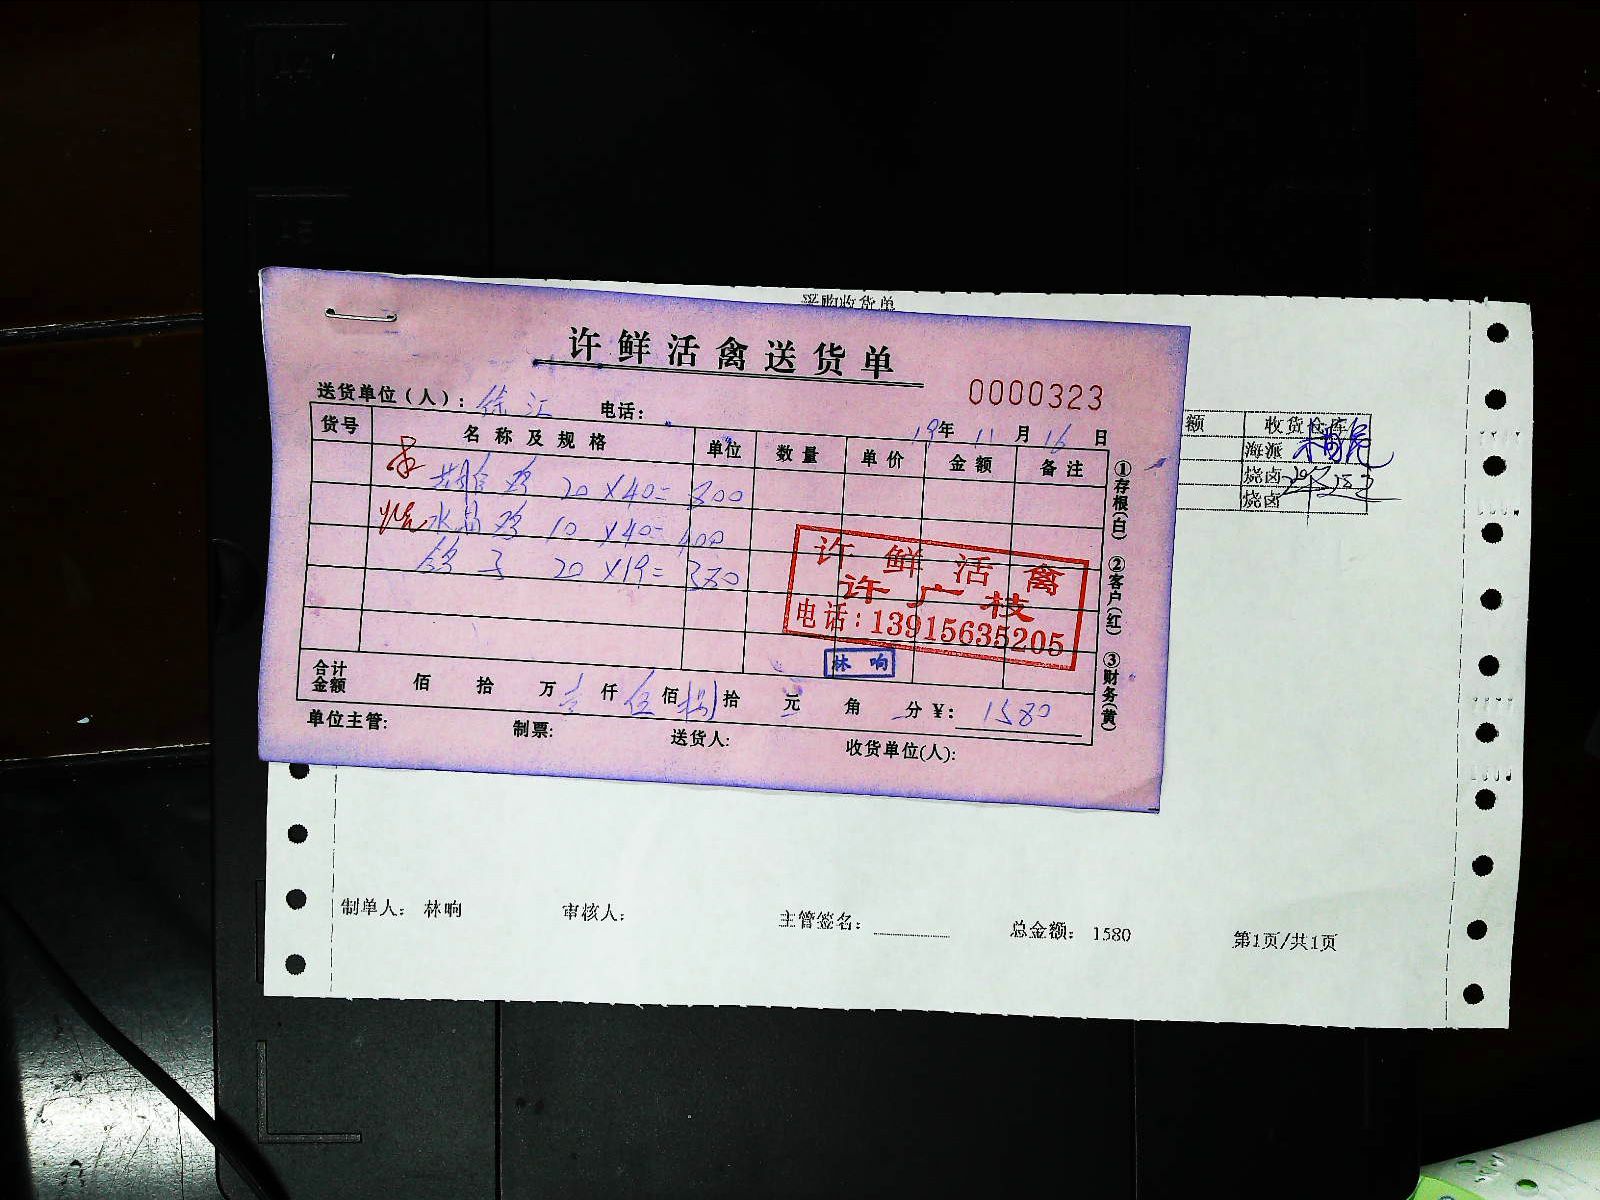 采购收货单
许鲜活禽送货单
0000323
送货单位（人）：徐汇 电话：
19年 11月 16日
货号 名称及规格 单位 数量 单价 金额 备注
鸡 20×40=800
水晶鸡 10×40=400
鸽子 20×19=380
许鲜活禽
许广枝
电话：13915635205
林响
合计金额 佰 拾 万 壹仟 伍佰 捌拾 元 角 分 ¥：1580
单位主管： 制票： 送货人： 收货单位(人)：
①存根(白) ②客户(红) ③财务(黄)
额 收货仓库
海派
烧卤
烧卤
制单人： 林响 审核人： 主管签名： 总金额： 1580 第1页/共1页